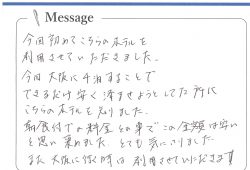 Message
今回初めてこちらのホテルを
利用させていただきました。
今回大阪に千泊することで
できるだけ安く済ませようとしてた所に
こちらのホテルを知りました。
朝食付での料金との事でこの金額は安い
と思い泊めました。とても気に入りました。
また大阪に行く時は利用させていただきます!